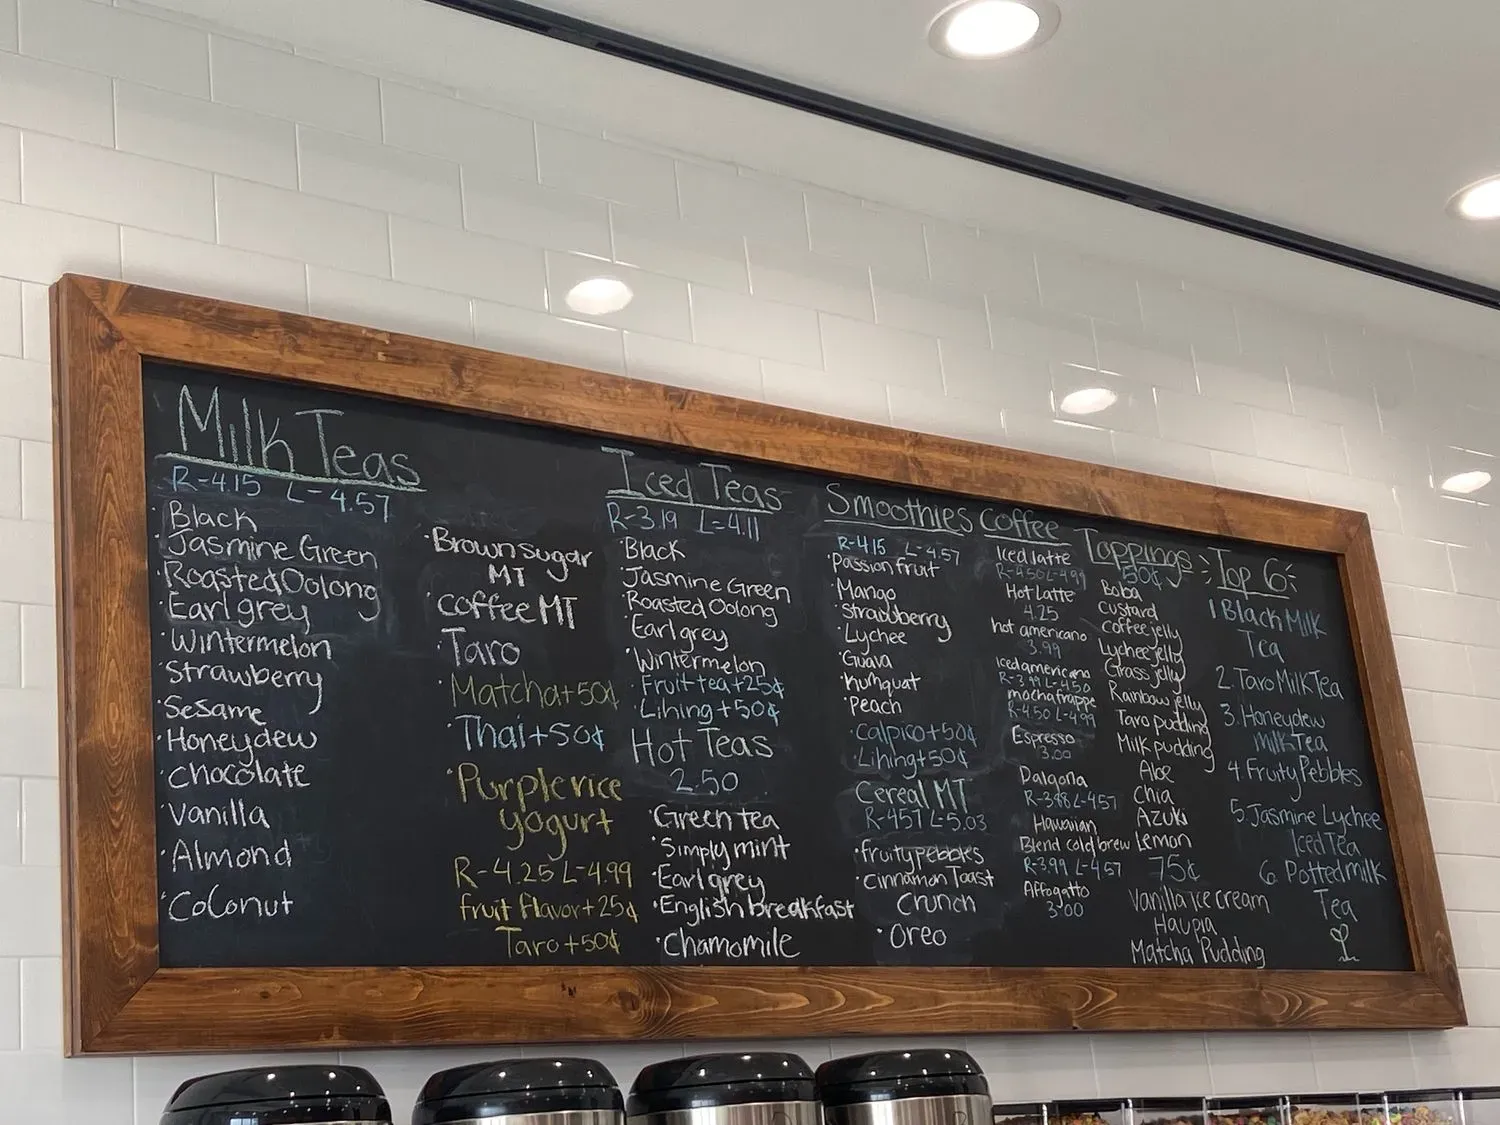 Milk Teas
R-4.15 L-4.57
·Black
·Jasmine Green
·Roasted Oolong
·Earl grey
·Wintermelon
·Strawberry
·Sesame
·Honeydew
·Chocolate
·Vanilla
·Almond
·Coconut
·Brown sugar
MT
·Coffee MT
·Taro
·Matcha+50¢
·Thai+50¢
·Purple rice
yogurt
R-4.25 L-4.99
fruit flavor+25¢
Taro+50¢
Iced Teas
R-3.19 L-4.11
·Black
·Jasmine Green
·Roasted Oolong
·Earl grey
·Wintermelon
·Fruit tea+25¢
·Lihing+50¢
Hot Teas
2.50
·Green tea
·Simply mint
·Earl grey
·English breakfast
·Chamomile
Smoothies
R-4.15 L-4.57
·Passion fruit
·Mango
·Strawberry
·Lychee
·Guava
·kumquat
·Peach
·Calpico+50¢
·Lihing+50¢
Cereal MT
R-4.57 L-5.03
·fruity pebbles
·Cinnamon Toast
Crunch
·Oreo
Coffee
Iced latte
R-4.50 L-4.99
Hot Latte
4.25
hot americano
3.99
Iced americano
R-3.99 L-4.50
mocha frappe
R-4.50 L-4.99
Espresso
3.00
Dalgona
R-3.88 L-4.57
Hawaiian
Blend cold brew
R-3.99 L-4.57
Affogatto
3.00
Toppings
50¢
Boba
Custard
Coffee jelly
Lychee jelly
Grass jelly
Rainbow jelly
Taro pudding
Milk pudding
Aloe
Chia
Azuki
Lemon
75¢
Vanilla ice cream
Haupia
Matcha Pudding
Top 6
1 Black Milk
Tea
2. Taro Milk Tea
3. Honeydew
milk Tea
4. Fruity Pebbles
5. Jasmine Lychee
Iced Tea
6. Potted milk
Tea